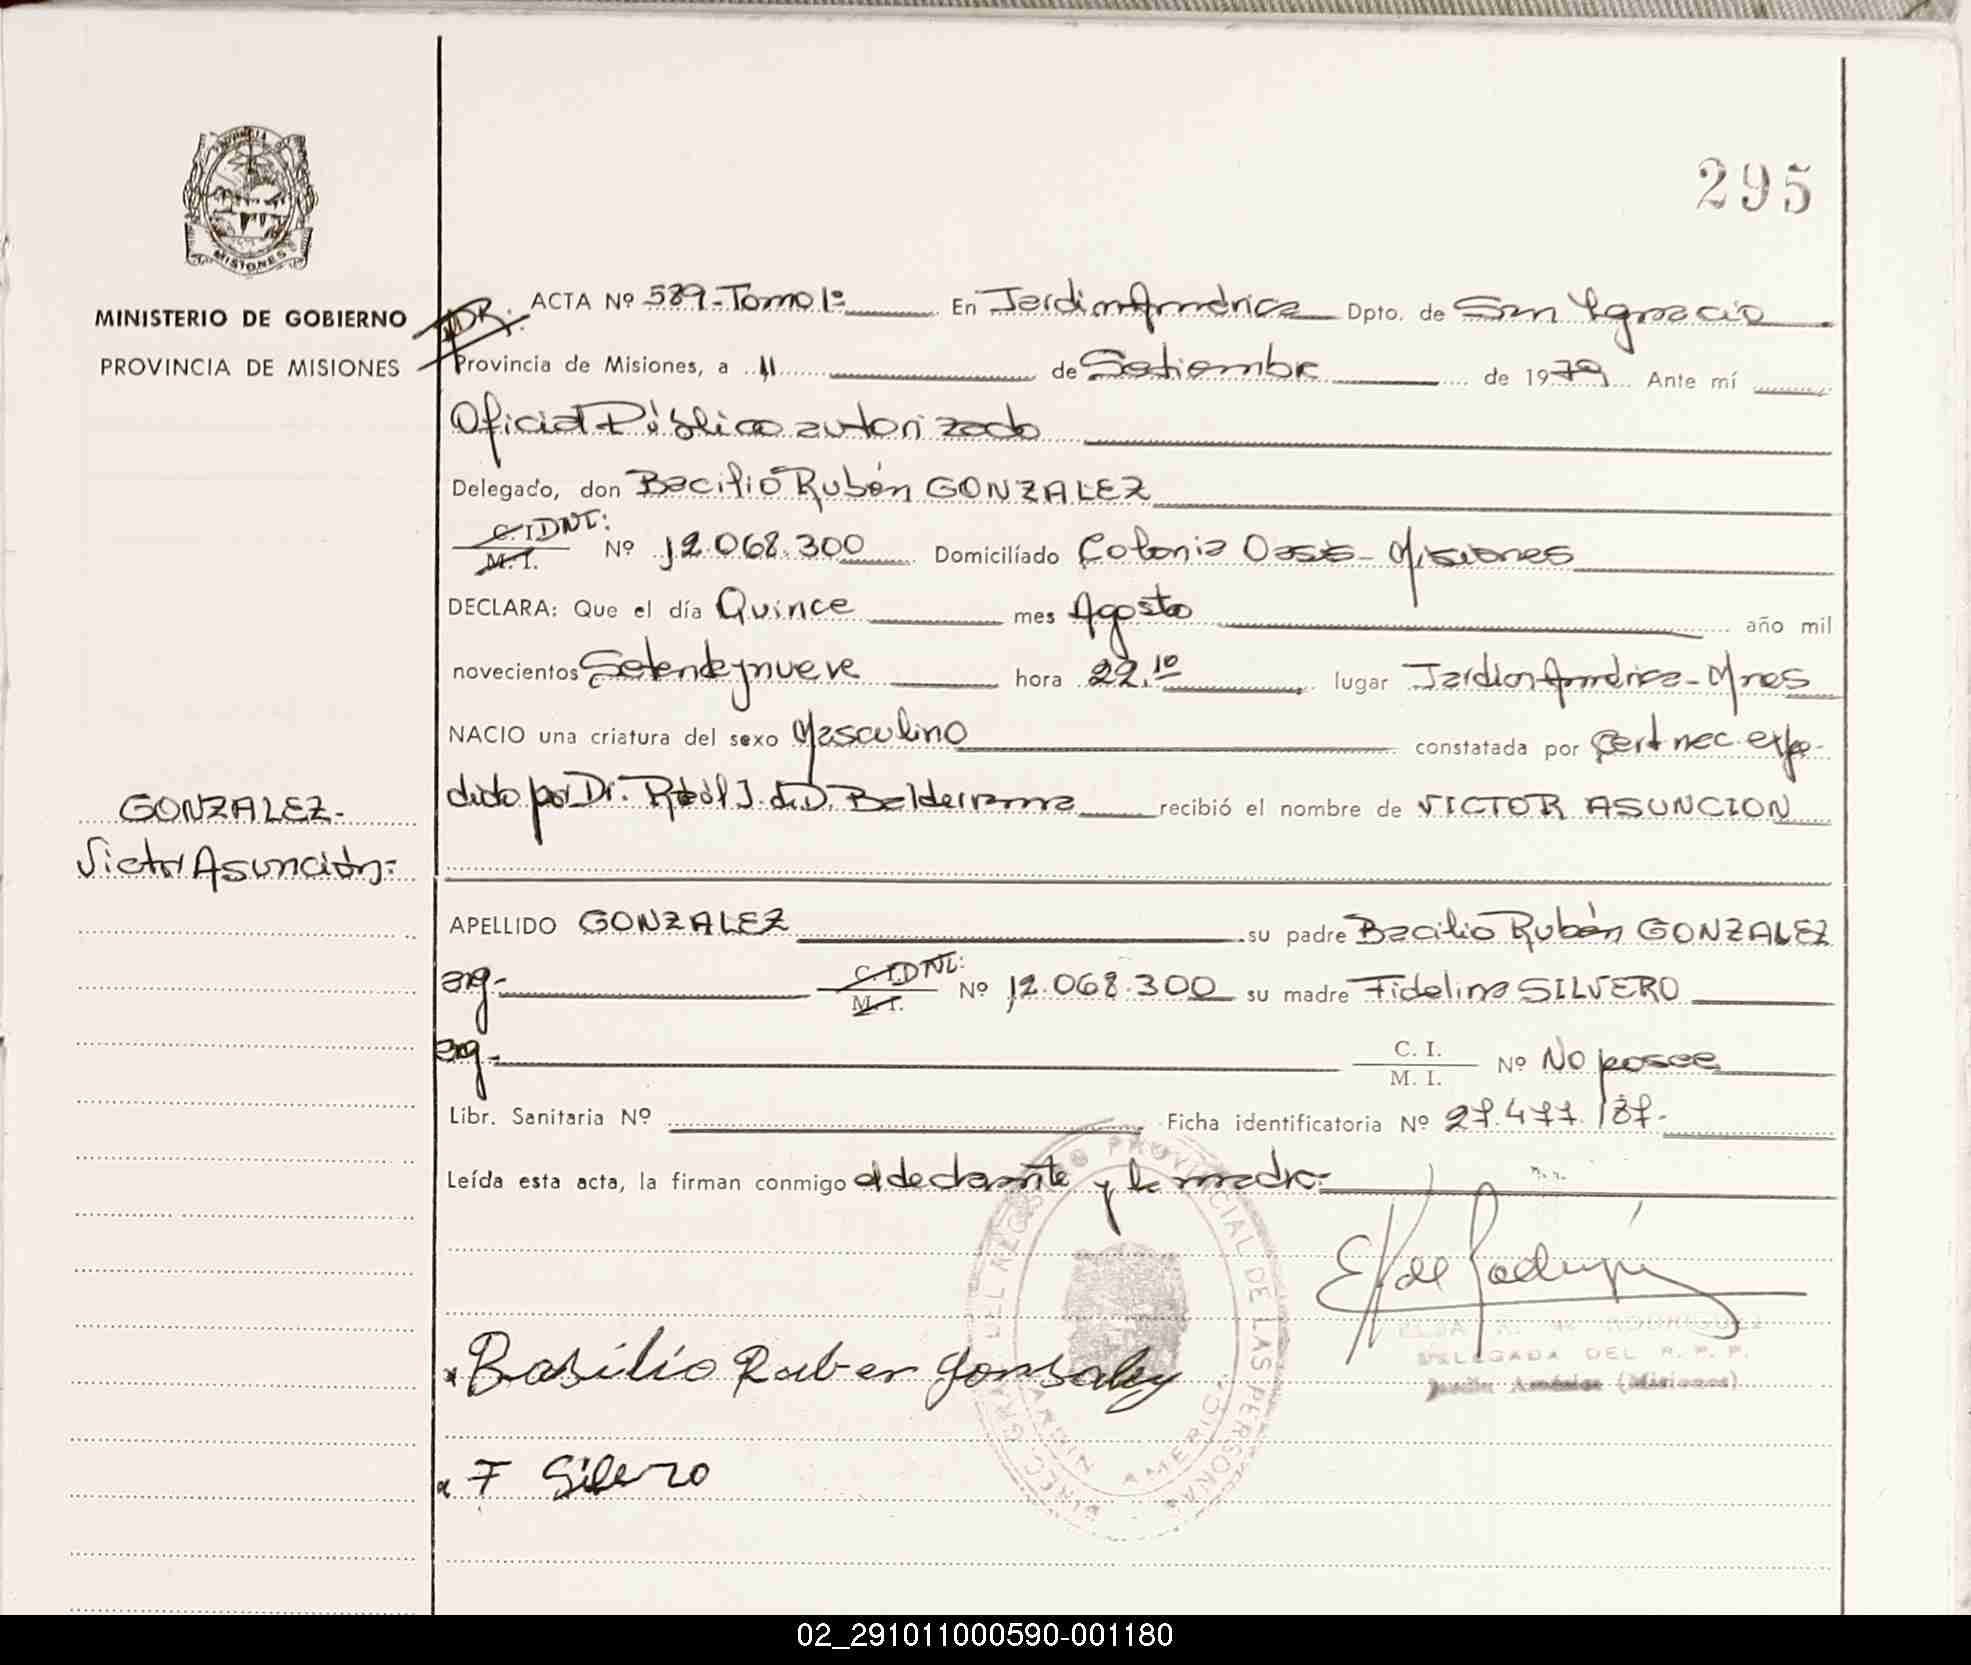 295
PROVINCIA
MISIONES
MINISTERIO DE GOBIERNO
PROVINCIA DE MISIONES
ACTA Nº 589-Tomo 1º En Jardin América Dpto. de San Ignacio
Provincia de Misiones, a 11 de Setiembre de 1979 Ante mí
Oficial Público autorizado
Delegado, don Bacilio Rubén GONZALEZ
C.I. DNI:
M. I. Nº 12.068.300 Domiciliado Colonia Oasis - Misiones
DECLARA: Que el día Quince mes Agosto año mil
novecientos Setenta y nueve hora 22,10 lugar Jardin América - Mnes
NACIO una criatura del sexo Masculino constatada por Cert nec. expe-
dido por Dr. J. d. D. Balderrama recibió el nombre de VICTOR ASUNCION
GONZALEZ-
Victor Asunción:
APELLIDO GONZALEZ su padre Bacilio Rubén GONZALEZ
arg- C.I. DNI:
M. I. Nº 12.068.300 su madre Fidelina SILVERO
arg- C. I.
M. I. Nº No posee
Libr. Sanitaria Nº Ficha identificatoria Nº 27.477.187-
Leída esta acta, la firman conmigo el declarante y la madre:
DIREC. GRAL. DEL REGISTRO PROVINCIAL DE LAS PERSONAS
JARDIN AMERICA
ELSA A. de RODRIGUEZ
DELEGADA DEL R. P. P.
Jardín América (Misiones)
x Basilio Ruben Gonsalez
x F Silero
02_291011000590-001180